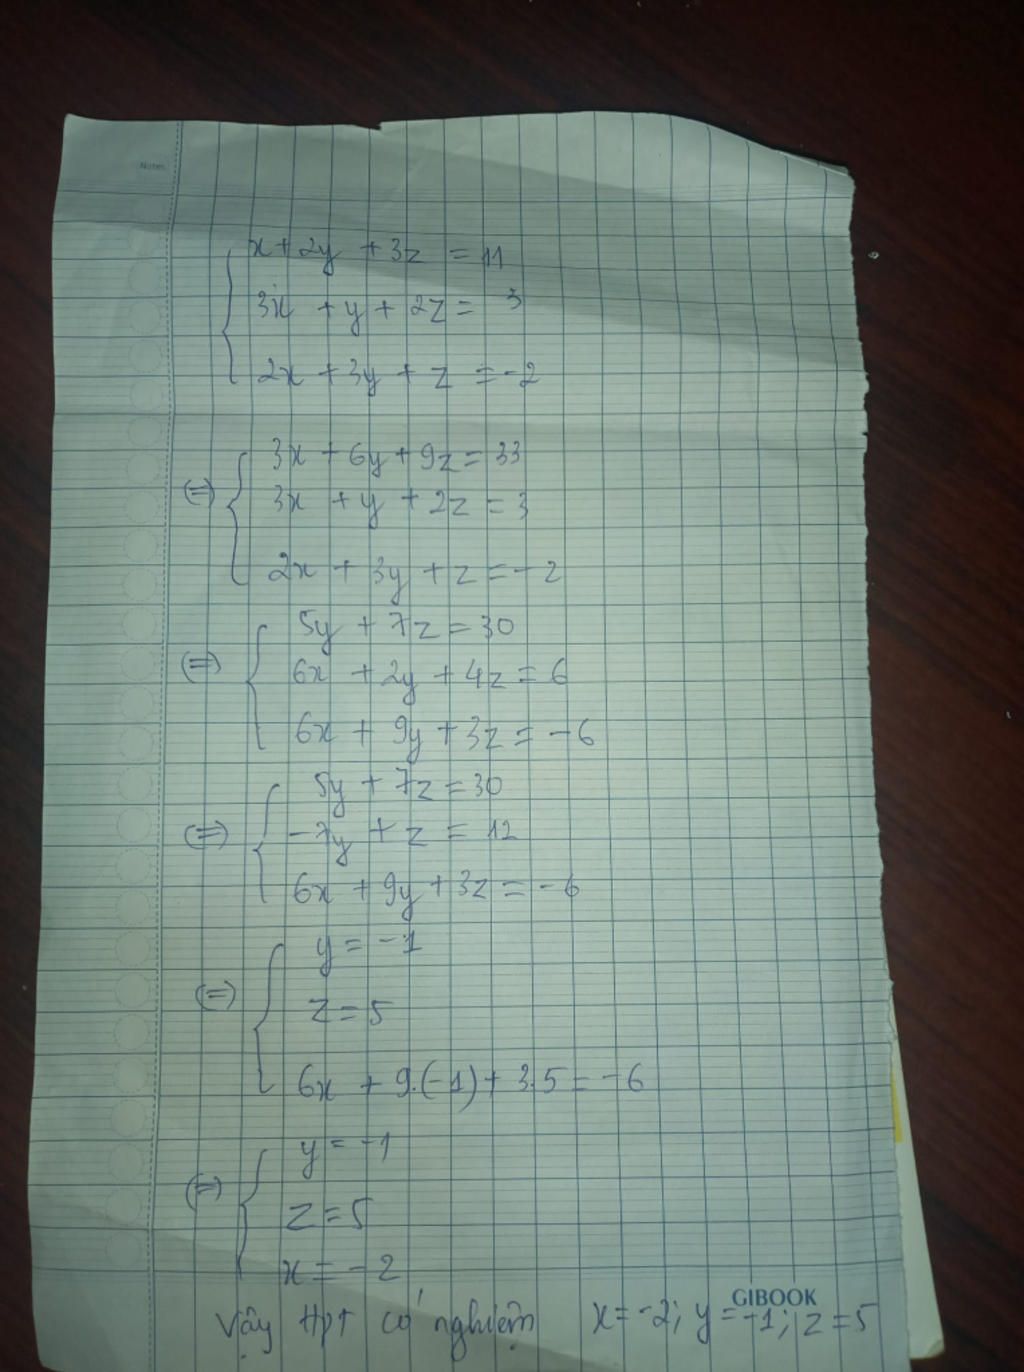 Notes
x + 2y + 3z = 11
3x + y + 2z = 3
2x + 3y + z = -2
(=) 3x + 6y + 9z = 33
3x + y + 2z = 3
2x + 3y + z = -2
(=) 5y + 7z = 30
6x + 2y + 4z = 6
6x + 9y + 3z = -6
(=) 5y + 7z = 30
-7y + z = 12
6x + 9y + 3z = -6
(=) y = -1
z = 5
6x + 9.(-1) + 3.5 = -6
(=) y = -1
z = 5
x = -2
GIBOOK
Vậy Hpt có nghiệm x = -2; y = -1; z = 5